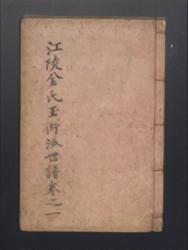 江陵金氏玉街派世譜卷之一